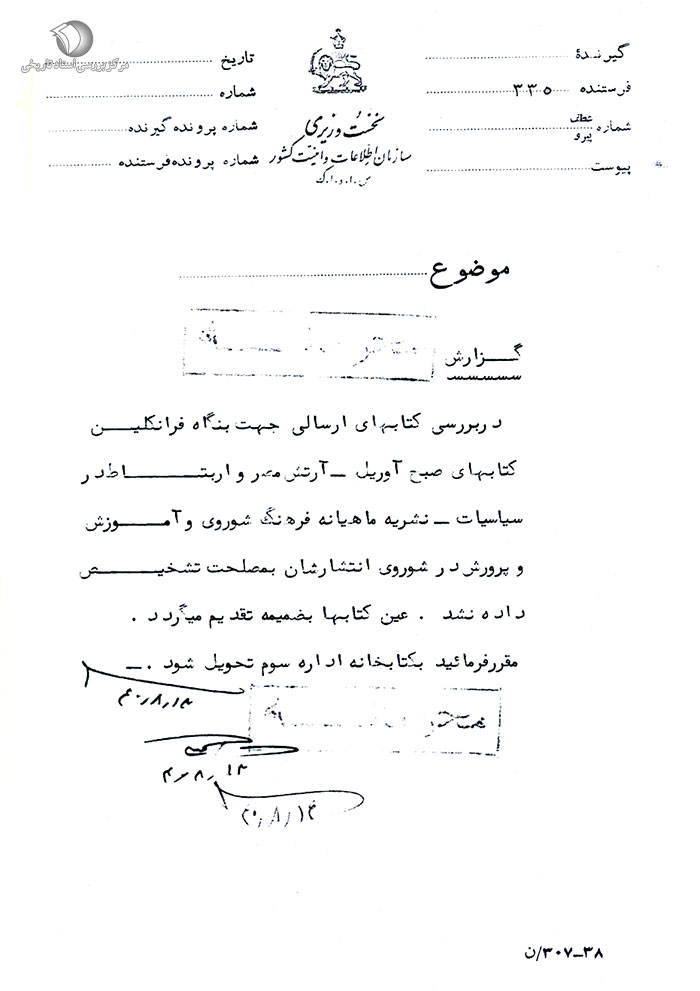 مرکز بررسی اسناد تاریخی
گیرندهٔ
فرستنده ۳۳۵
شماره عطف پیرو
پیوست
نخست وزیری
سازمان اطلاعات و امنیت کشور
س.ا.و.ا.ک
تاریخ
شماره
شماره پرونده گیرنده
شماره پرونده فرستنده
موضوع
گـــزارش
دربررسی کتابهای ارسالی جهت بنگاه فرانکلیــن
کتابهای صبح آوریل ــ آرتش مصر و اربتـــاط در
سیاسیات ــ نشریه ماهیانه فرهنگ شوروی و آمـــوزش
و پرورش در شوروی انتشارشان بمصلحت تشخیــص
داده نشد . عین کتابها بضمیمه تقدیم میگردد .
مقررفرمائید بکتابخانه اداره سوم تحویل شود .ــ
۴۰٫۸٫۱۳
۱۳٫۸
۴۰٫۸٫۱۴
۳۸ــ۳۰۷/ن